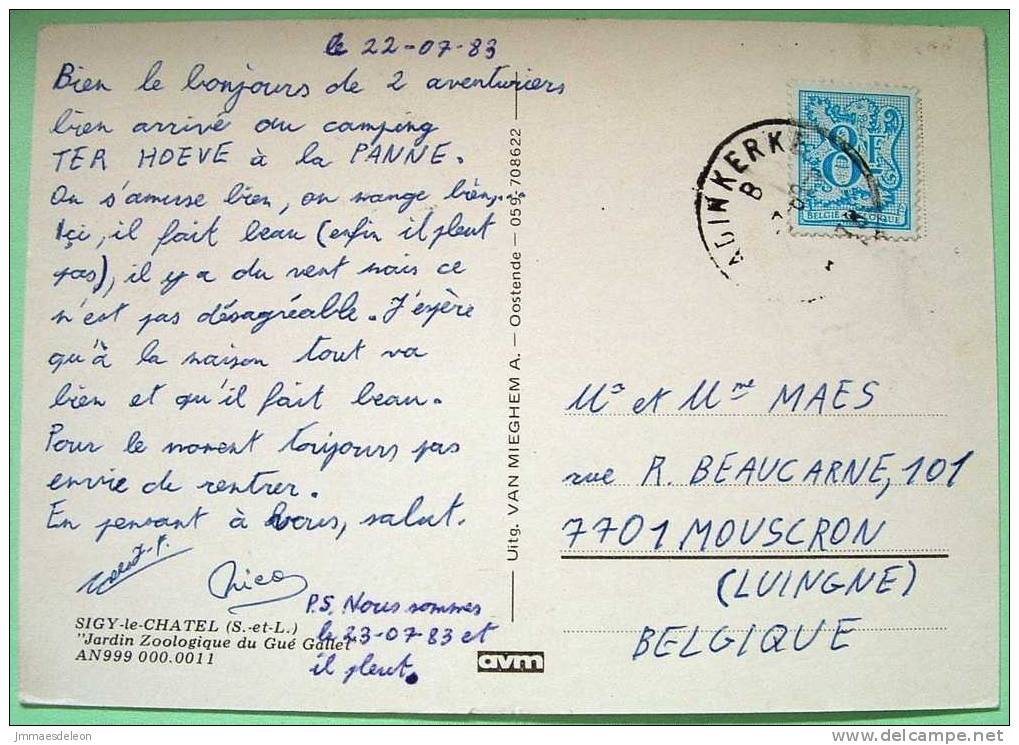 le 22-07-83
Bien le bonjours de 2 aventuriers
bien arrivé au camping
TER HOEVE à la PANNE.
On s'amuse bien, on mange bien...
Içi, il fait beau (enfin il pleut
pas), il y a du vent mais ce
n'est pas désagréable. J'espère
qu'à la maison tout va
bien et qu'il fait beau.
Pour le moment toujours pas
envie de rentrer.
En pensant à vous, salut.
J-P.
Nico
P.S. Nous sommes
le 23-07-83 et
il pleut.
SIGY-le-CHATEL (S.-et-L.)
"Jardin Zoologique du Gué Gallet"
AN999 000.0011
Uitg. VAN MIEGHEM A. — Oostende - 059/708622
avm
ADINKERKE
B
8F
BELGIË BELGIQUE
Mr et Mme MAES
rue R. BEAUCARNE, 101
7701 MOUSCRON
(LUINGNE)
BELGIQUE
jmmaesdeleon
www.delcampe.net